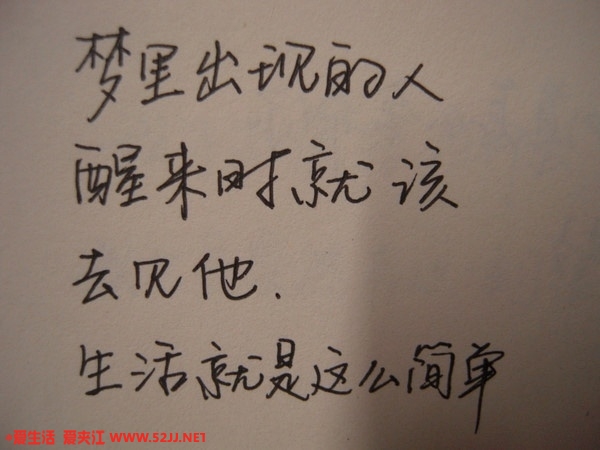 梦里出现的人
醒来时就该
去见他.
生活就是这么简单
爱生活 爱夹江 WWW.52JJ.NET